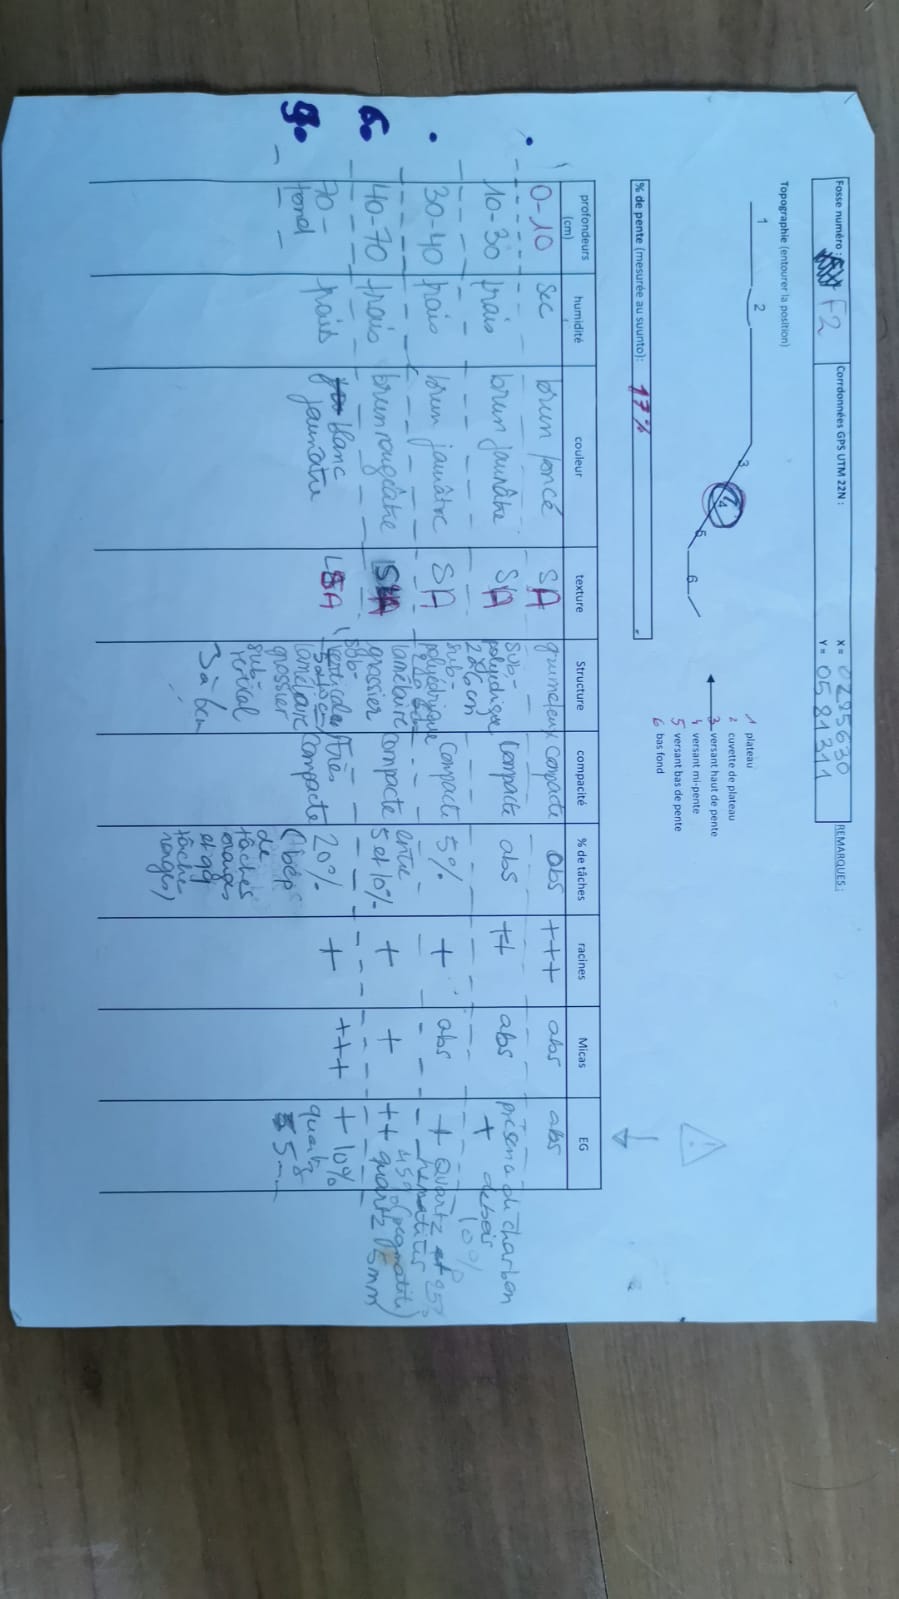 Fosse numéro : F2
Corrdonnées GPS UTM 22N :
X = 0285630
Y = 0581311
REMARQUES :
Topographie (entourer la position)
1 2 3 4 5 6
1 plateau
2 cuvette de plateau
3 versant haut de pente
4 versant mi-pente
5 versant bas de pente
6 bas fond
% de pente (mesurée au suunto): 17%
profondeurs (cm) humidité couleur texture Structure compacité % de tâches racines Micas EG
0-10 sec brun foncé SA grumeleux compacte abs +++ abs abs
10-30 frais brun jaunâtre SA sub-polyédrique 2 à 6cm compacte abs ++ abs présence de charbon de bois + 10%
30-40 frais brun jaunâtre SA sub-polyédrique compacte 5% + abs + quartz et 25%
40-70 frais brun rougeâtre lamélaire grossier sub-verticale 5 à 10cm compacte entre 5 et 10% + + ++ 45% (pegmatite) quartz 5mm
70-fond frais blanc jaunâtre LSA lamélaire grossier sub-vertical 3 à 6cm très compacte 20% (bcp de tâches oranges et qq tâche rouges) + +++ + 10% quartz 5